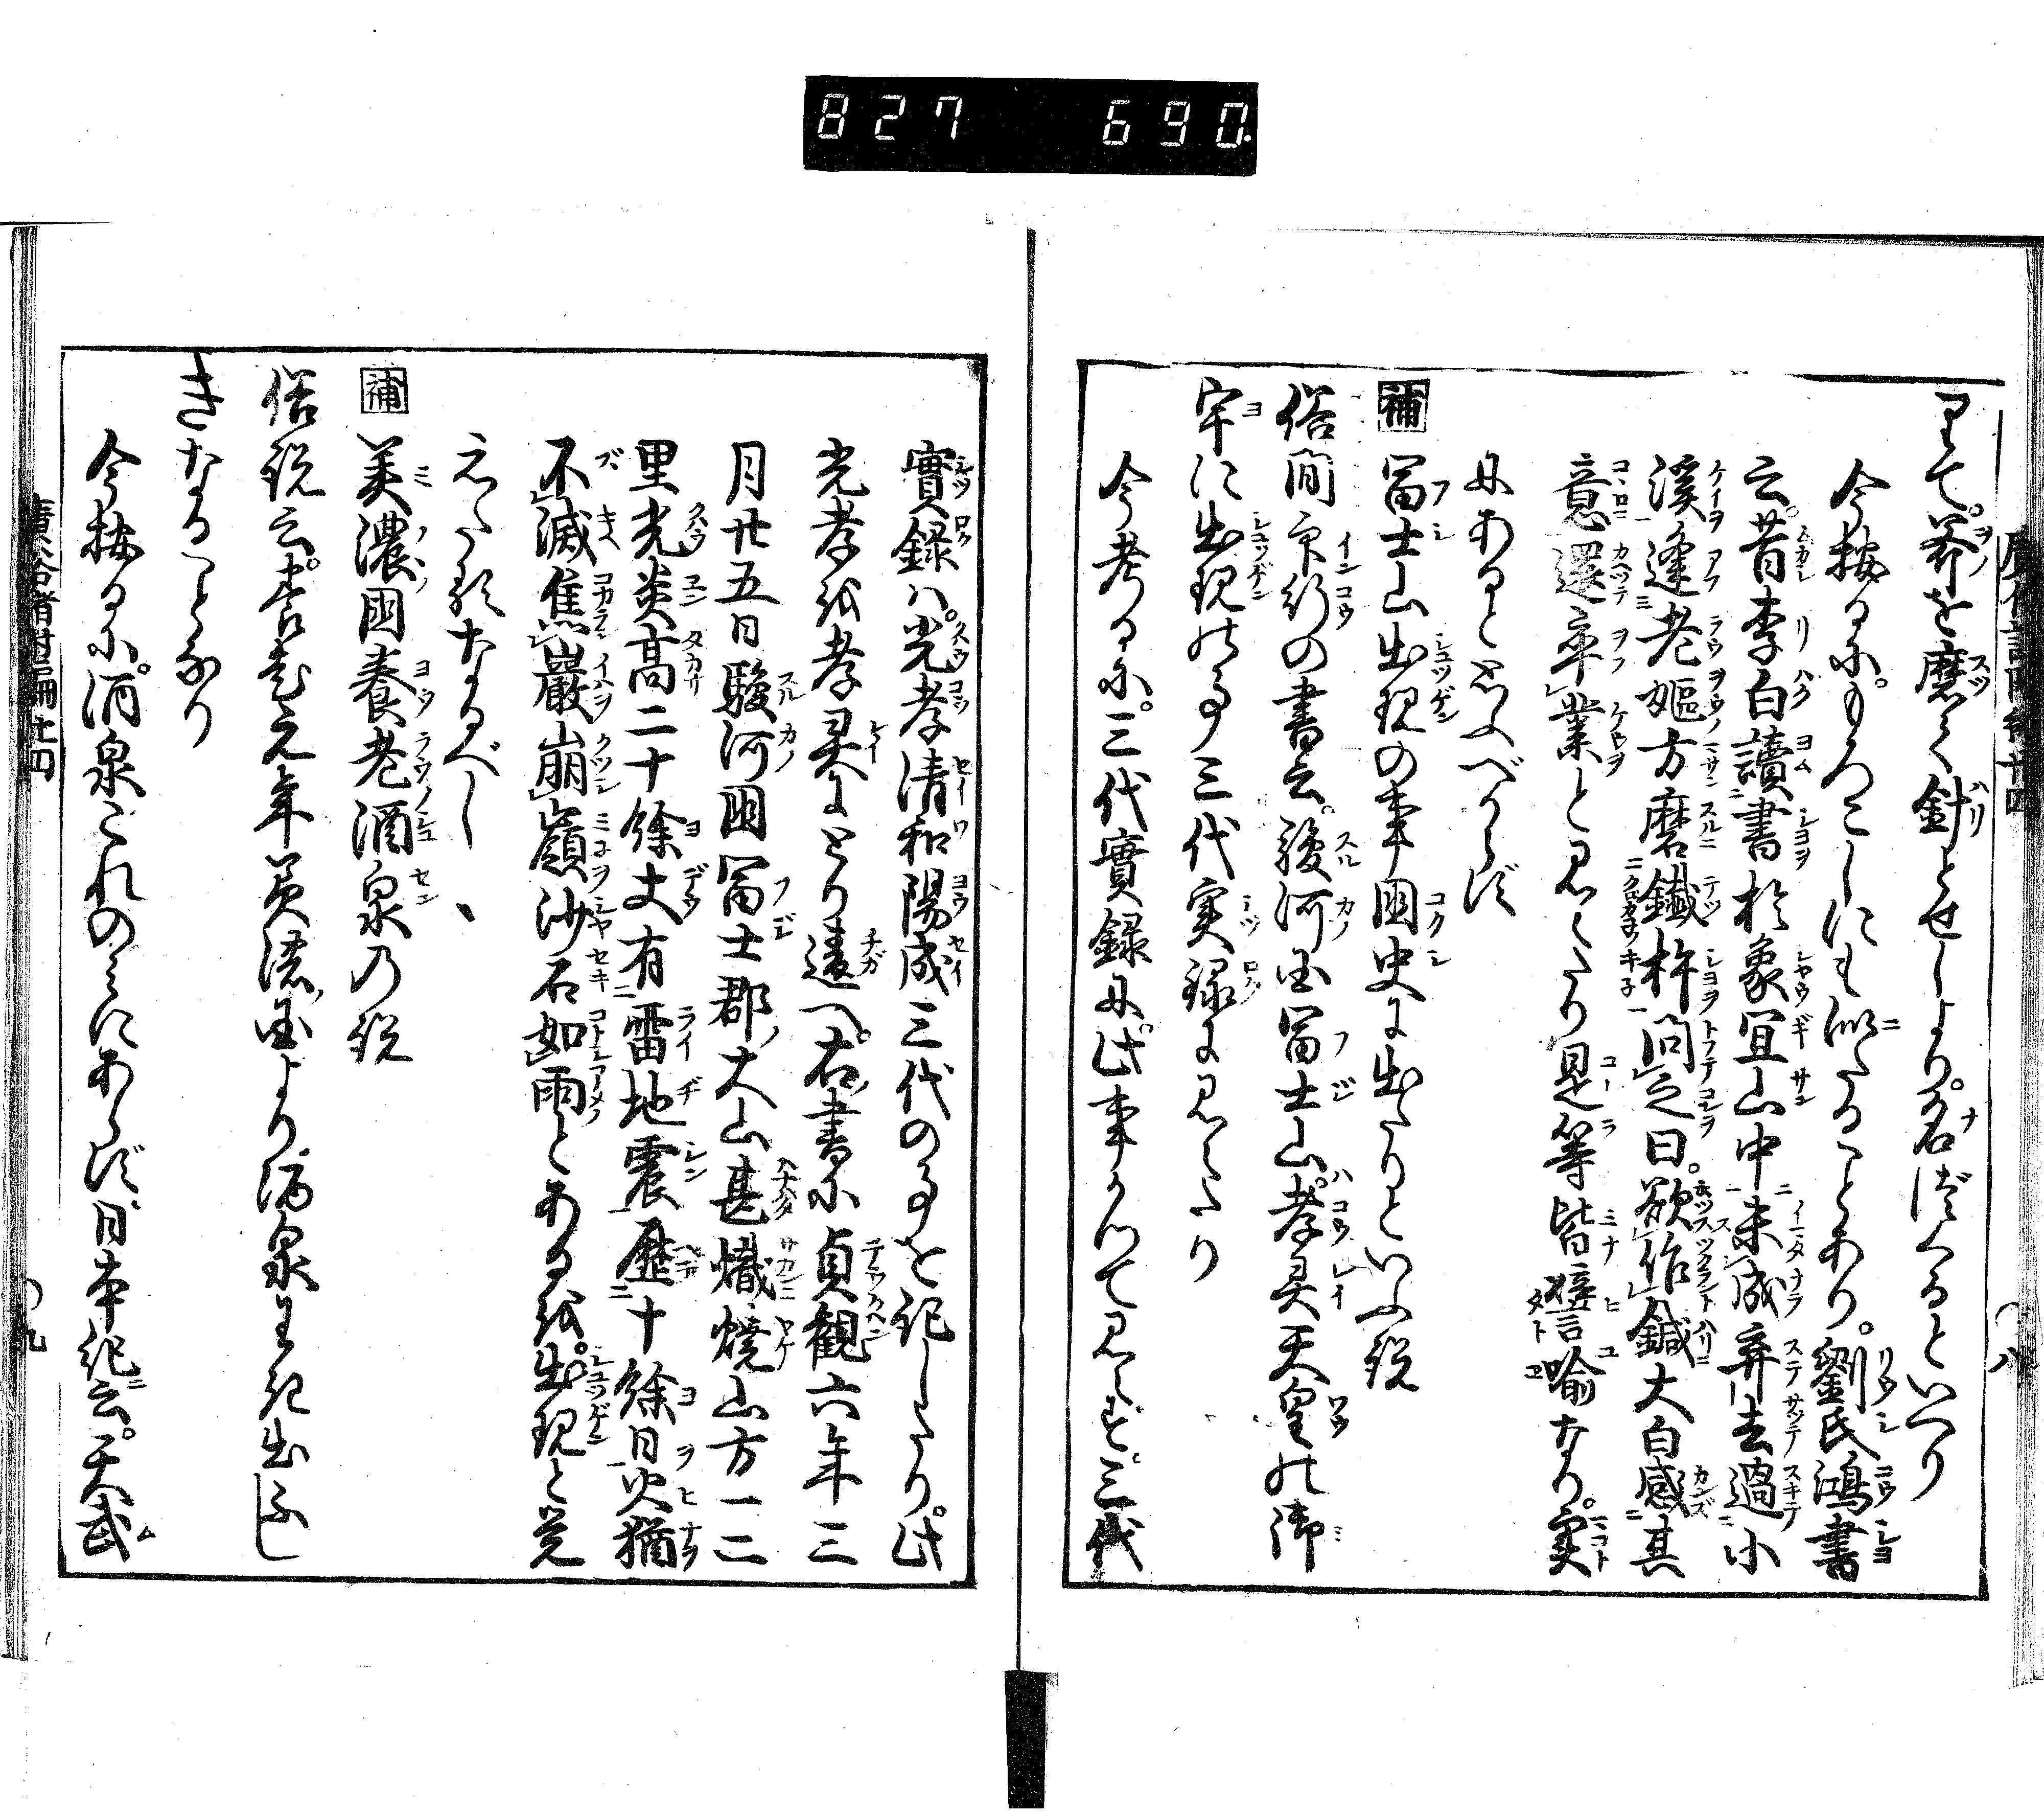 827 690
りて。斧を磨て針とせしより。名づくるといへり
今按るに。もろこしにも似たることあり。劉氏鴻書
云。昔李白讀書於象宜山中未成弃去過小
溪逢老嫗方磨鐵杵問之曰。欲作鍼大白感其
意還卒業と見えたり是等皆譬喩なり。実
にあると思ふべからず
補 冨士山出現の事国史に出たりといふ説
俗間印行の書云。駿河国冨士山。孝灵天皇の御
宇に出現の事三代実録に見えたり
今考るに。三代實録に。此事かつて見えず。三代
實録ハ。光孝清和陽成三代の事を記したり。此
光孝を孝灵ととり違へ。右書に貞観六年三
月廿五日駿河国冨士郡大山甚熾燒山方一二
里光炎高二十餘丈有雷地震歴十餘日火猶
不滅焦巖崩嶺沙石如雨とある を。出現と覚
えたるなるべし
補 美濃国養老酒泉の説
俗説云。養老元年美濃国より酒泉わき出しし
きなることなり
今按るに。酒泉これのみにあらず。日本紀云。天武
廣益俗説弁後編廿四
八
九